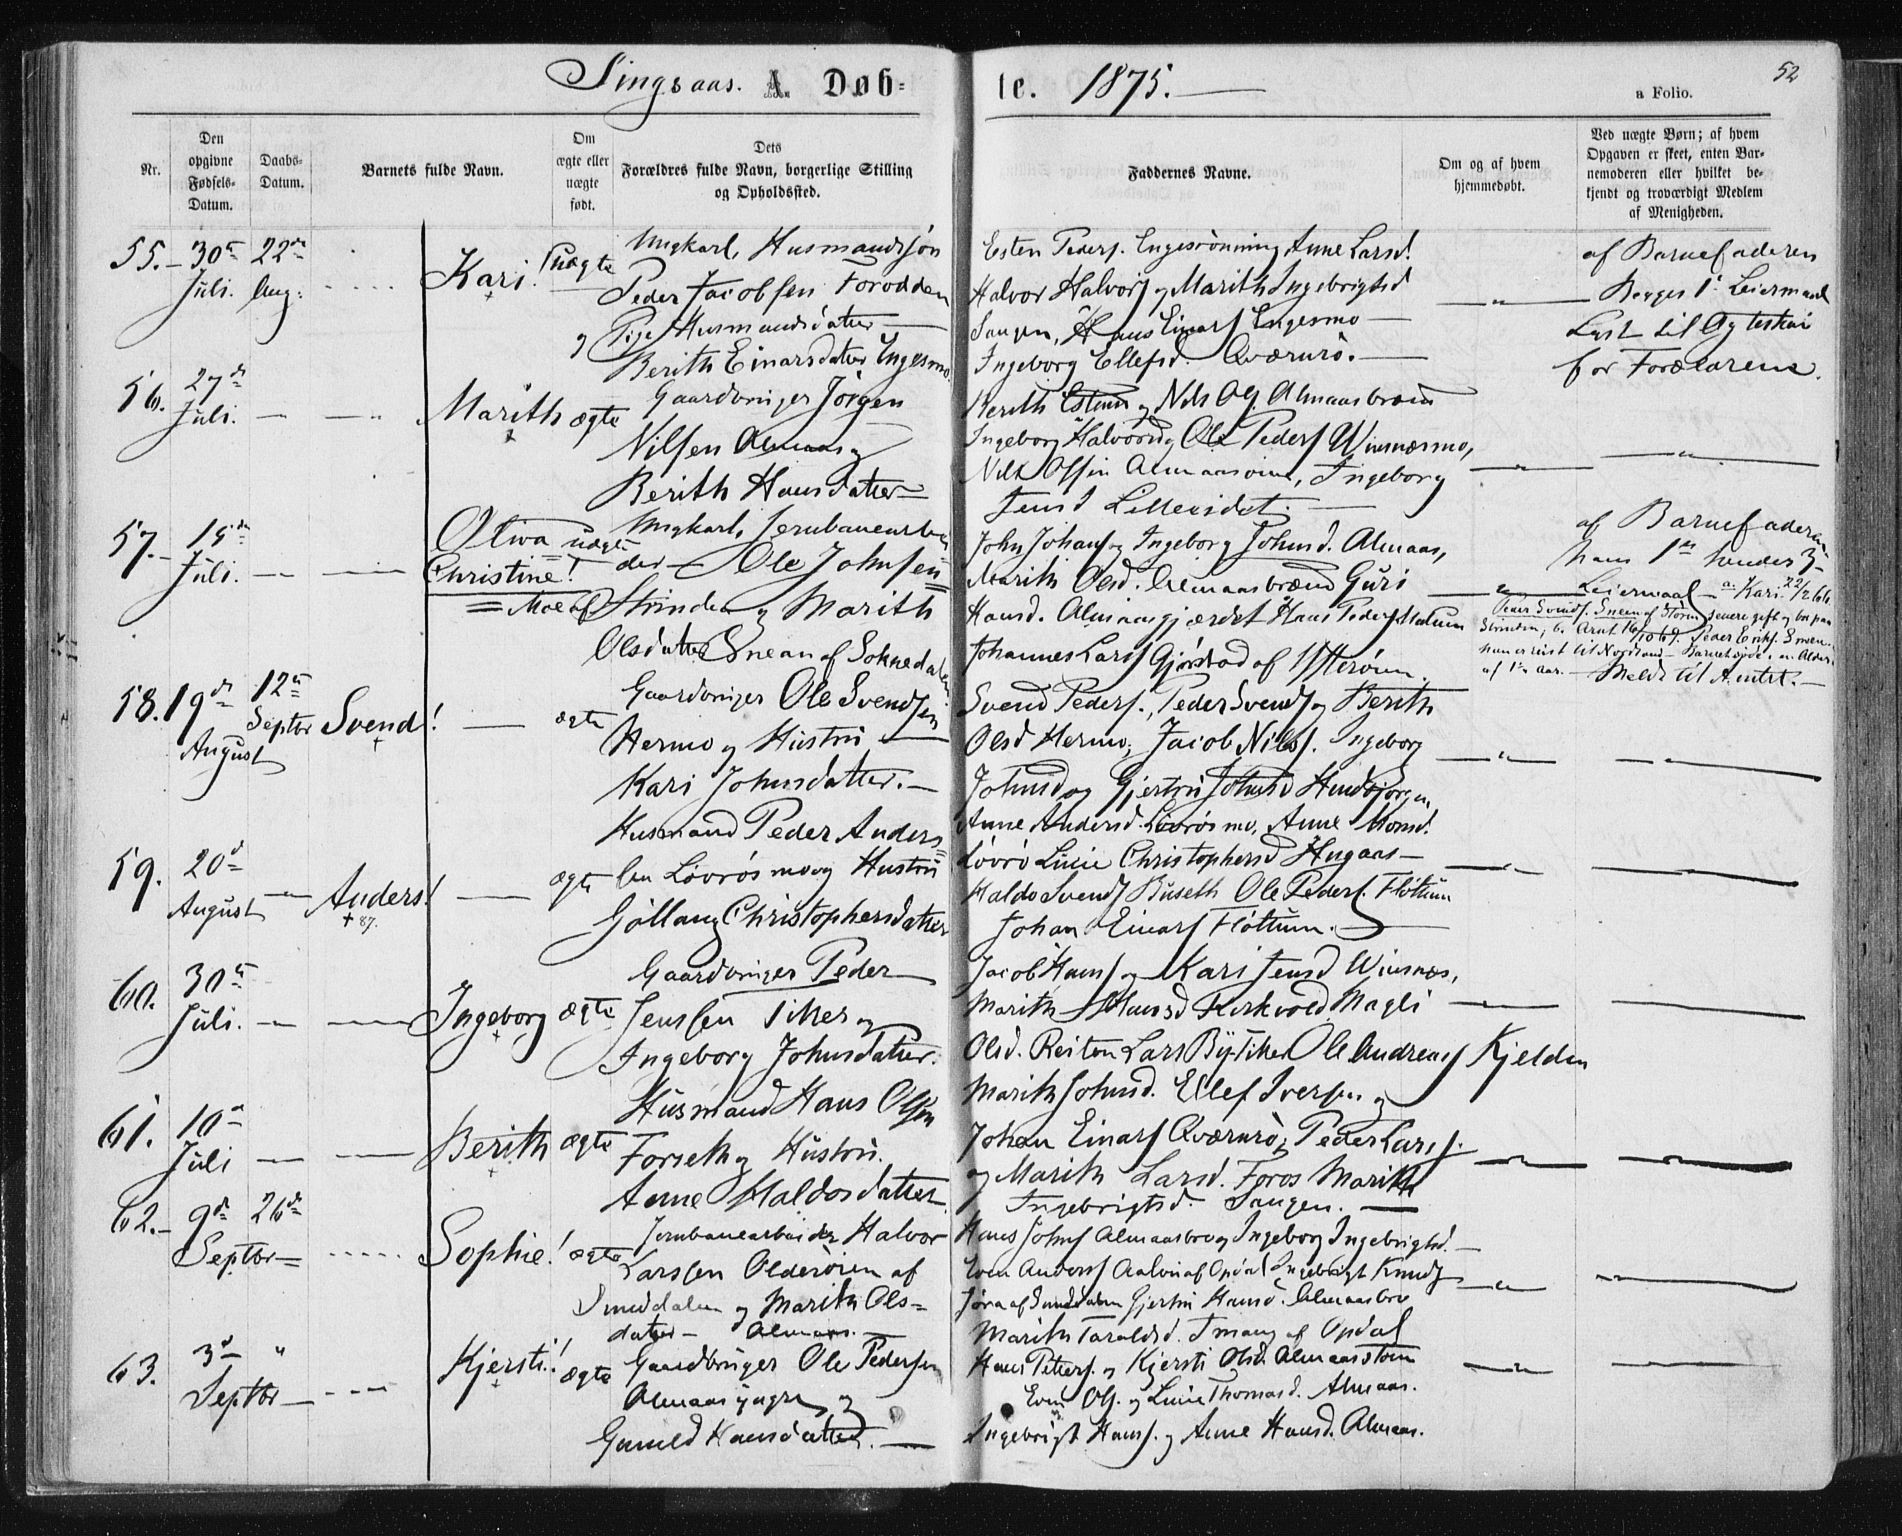 Singsaas. A. Døb=
te. 1875.
52
a Folio.
Nr.
Den opgivne Fødsels-Datum.
Daabs-Datum.
Barnets fulde Navn.
Om ægte eller uægte født.
Dets Forældres fulde Navn, borgerlige Stilling og Opholdssted.
Faddernes Navne.
Om og af hvem hjemmedøbt.
Ved uægte Børn; af hvem Opgaven er skeet, enten Barnemoderen eller hvilket bekjendt og troværdigt Medlem af Menigheden.
55. 30te Juli. 22de Aug. Kari! uægte
Ungkarl, Husmandssøn
Peder Jacobsen Forodden
og Pige Husmandsdatter
Berith Einarsdatter Engesmo
Esten Peders. Engesrønning Anne Larsd.
Halvor Halvors og Marith Ingebrigtsd
Saugen, Hans Einars Engesmo
Ingeborg Ellefsd. Qværnrø.
af Barnefaderen
Begges 1te Leiermaal
Lyst til Ægteskab
for Forældrene.
56. 27de Juli. Marith ægte
Gaardbruger Jørgen
Nilsen Almaas og
Berith Hansdatter
Berith Estensd og Nils Ols. Almaasbræud
Ingeborg Halvorsd og Ole Peders Winsnæsmo,
Nils Olsen Almaas, Ingeborg
Jensd Lilleeidet.
57. 15de Juli. Oliva Christine! uægte
Ungkarl, Jernbanearbei
der Ole Johnsen
Moe af Strinden og Marith
Olsdatter Sneen af Soknedalen
John Johans og Ingeborg Johnsd. Almaas,
Marith Olsd. Almaasbræud Guri
Hansd. Almaasgjærdet Hans Peders
Johannes Lars Gjørstad af Ytterøen.
af Barnefaderen
hans 1te hendes 3
Leiermaal a. Kari 22/2 66
Meldt til Amtet.
58. 19de August 12te Septbr Svend! ægte
Gaardbruger Ole Svendsen
Hermo og Hustru
Kari Johnsdatter.
Svend Peders., Peder Svends og Berith
Olsd Hermo, Jacob Nilss. Ingeborg
Johnsd og Gjertru Johnsd
59. 20de August Anders! 87. ægte
Husmand Peder Anders=
sen Løvrøsmo og Hustru
Gøllaug Christophersdatter
Anne Andersd. Løvrøsmo, Anne Monsd.
Løvrø Lucie Christophersd Hugaas
Haldo Svends Buseth Ole Peders. Fløttum
Johan Einars Fløttum.
60. 30te Juli. Ingeborg ægte
Gaardbruger Peder
Jenssen Siker og
Ingeborg Johnsdatter.
Jacob Hans og Kari Jensd Winsnæs,
Marith Hansd Kirkvold Magli
Olsd. Reiten Lars Ole Andreas Kjelden
61. 10de Juli Berith ægte
Husmand Hans Olsen
Forseth og Hustru.
Anne Haldosdatter
Marith Johnsd. Ellef Iversen og
Johan Einars Qværnrø, Peder Lars.
og Marith Larsd. Foros Marith
Ingebrigtsd. Saugen.
62. 9de Septbr 26de Sophie! ægte
Jernbanearbeider Halvor
Larssen Olderøien af
Sunddalen og Marith Ols=
datter Almaas.
Hans Johns Almaasbro og Ingeborg Ingebrigtsd.
Even Anders Aalvin af Opdal Ingebrigt Knuds
Jøra af Sunddalen Gjertru Hansd. Almaasbro
Marith Taraldsd. af Opdal
63. 3de Septbr Kjersti! ægte
Gaardbruger Ole Pedersen
Almaas yngre og
Gunild Hansdatter.
Hans Peters. og Kjersti Olsd. Almaas
Even Ols. og Lucie Thomasd. Almaas.
Ingebrigt Hans. og Anne Hansd. Almaas.